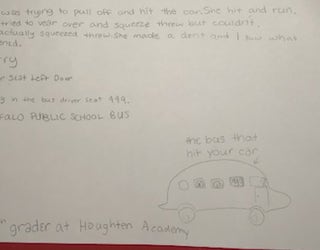 was trying to pull off and hit the car. She hit and run.
tried to vear over and squeeze threw but couldn't.
actually squeezed threw. She made a dent and I saw what
ened.
rry
r seat Left Door
g in the bus driver seat 449.
FALO PUBLIC SCHOOL BUS
the bus that
hit your car
grader at Houghten Academy